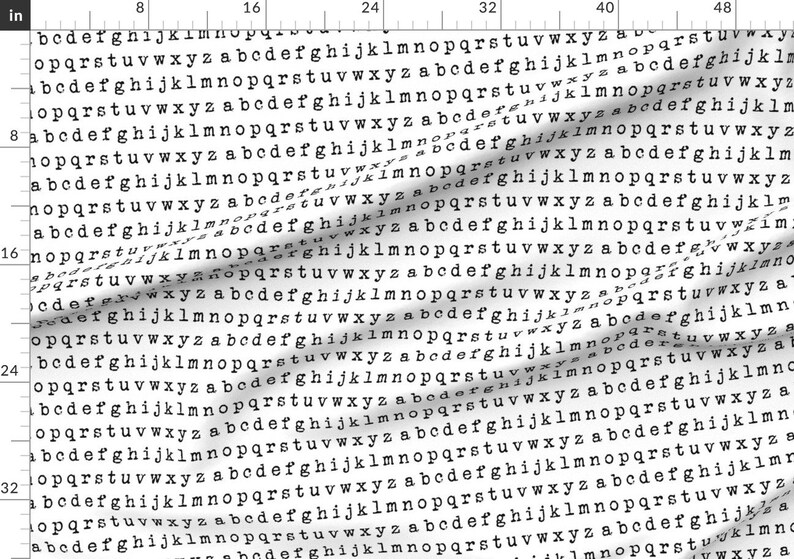 in
8 16 24 32 40 48
8
16
24
32
bcdefghijklmnopqrstuvwxyz
opqrstuvwxyz abcdefghijklmnopqrstuvwxyz abcdefghijklmnopqrstuvwxy
abcdefghijklmnopqrstuvwxyz abcdefghijklmnopqrstuvwxyz abcdefghijklm
opqrstuvwxyz abcdefghijklmnopqrstuvwxyz abcdefghijklmnopqrstuvwxyz
abcdefghijklmnopqrstuvwxyz abcdefghijklmnopqrstuvwxyz abcdefghijklm
opqrstuvwxyz abcdefghijklmnopqrstuvwxyz abcdefghijklmnopqrstuvwxyz
abcdefghijklmnopqrstuvwxyz abcdefghijklmnopqrstuvwxyz abcdefghijklm
nopqrstuvwxyz abcdefghijklmnopqrstuvwxyz abcdefghijklmnopqrstuvwxyz
abcdefghijklmnopqrstuvwxyz abcdefghijklmnopqrstuvwxyz abcdefghijklm
opqrstuvwxyz abcdefghijklmnopqrstuvwxyz abcdefghijklmnopqrstuvwxyz
abcdefghijklmnopqrstuvwxyz abcdefghijklmnopqrstuvwxyz abcdefghijklm
opqrstuvwxyz abcdefghijklmnopqrstuvwxyz abcdefghijklmnopqrstuvwxyz
bcdefghijklmnopqrstuvwxyz abcdefghijklmnopqrstuvwxyz abcdefghijklmn
opqrstuvwxyz abcdefghijklmnopqrstuvwxyz abcdefghijklmnopqrstuvwxyz a
bcdefghijklmnopqrstuvwxyz abcdefghijklmnopqrstuvwxyz abcdefghijklmn
opqrstuvwxyz abcdefghijklmnopqrstuvwxyz abcdefghijklmnopqrstuvwxyz a
abcdefghijklmnopqrstuvwxyz abcdefghijklmnopqrstuvwxyz abcdefghijklmn
opqrstuvwxyz abcdefghijklmnopqrstuvwxyz abcdefghijklmnopqrstuvwxyz a
abcdefghijklmnopqrstuvwxyz abcdefghijklmnopqrstuvwxyz abcdefghijklmn
opqrstuvwxyz abcdefghijklmnopqrstuvwxyz abcdefghijklmnopqrstuvwxyz
abcdefghijklmnopqrstuvwxyz abcdefghijklmnopqrstuvwxyz
opqrstuvwxyz abcdefghijklmnopqrstuvwxyz
abcdefghijklmnopqrstuvwxyz